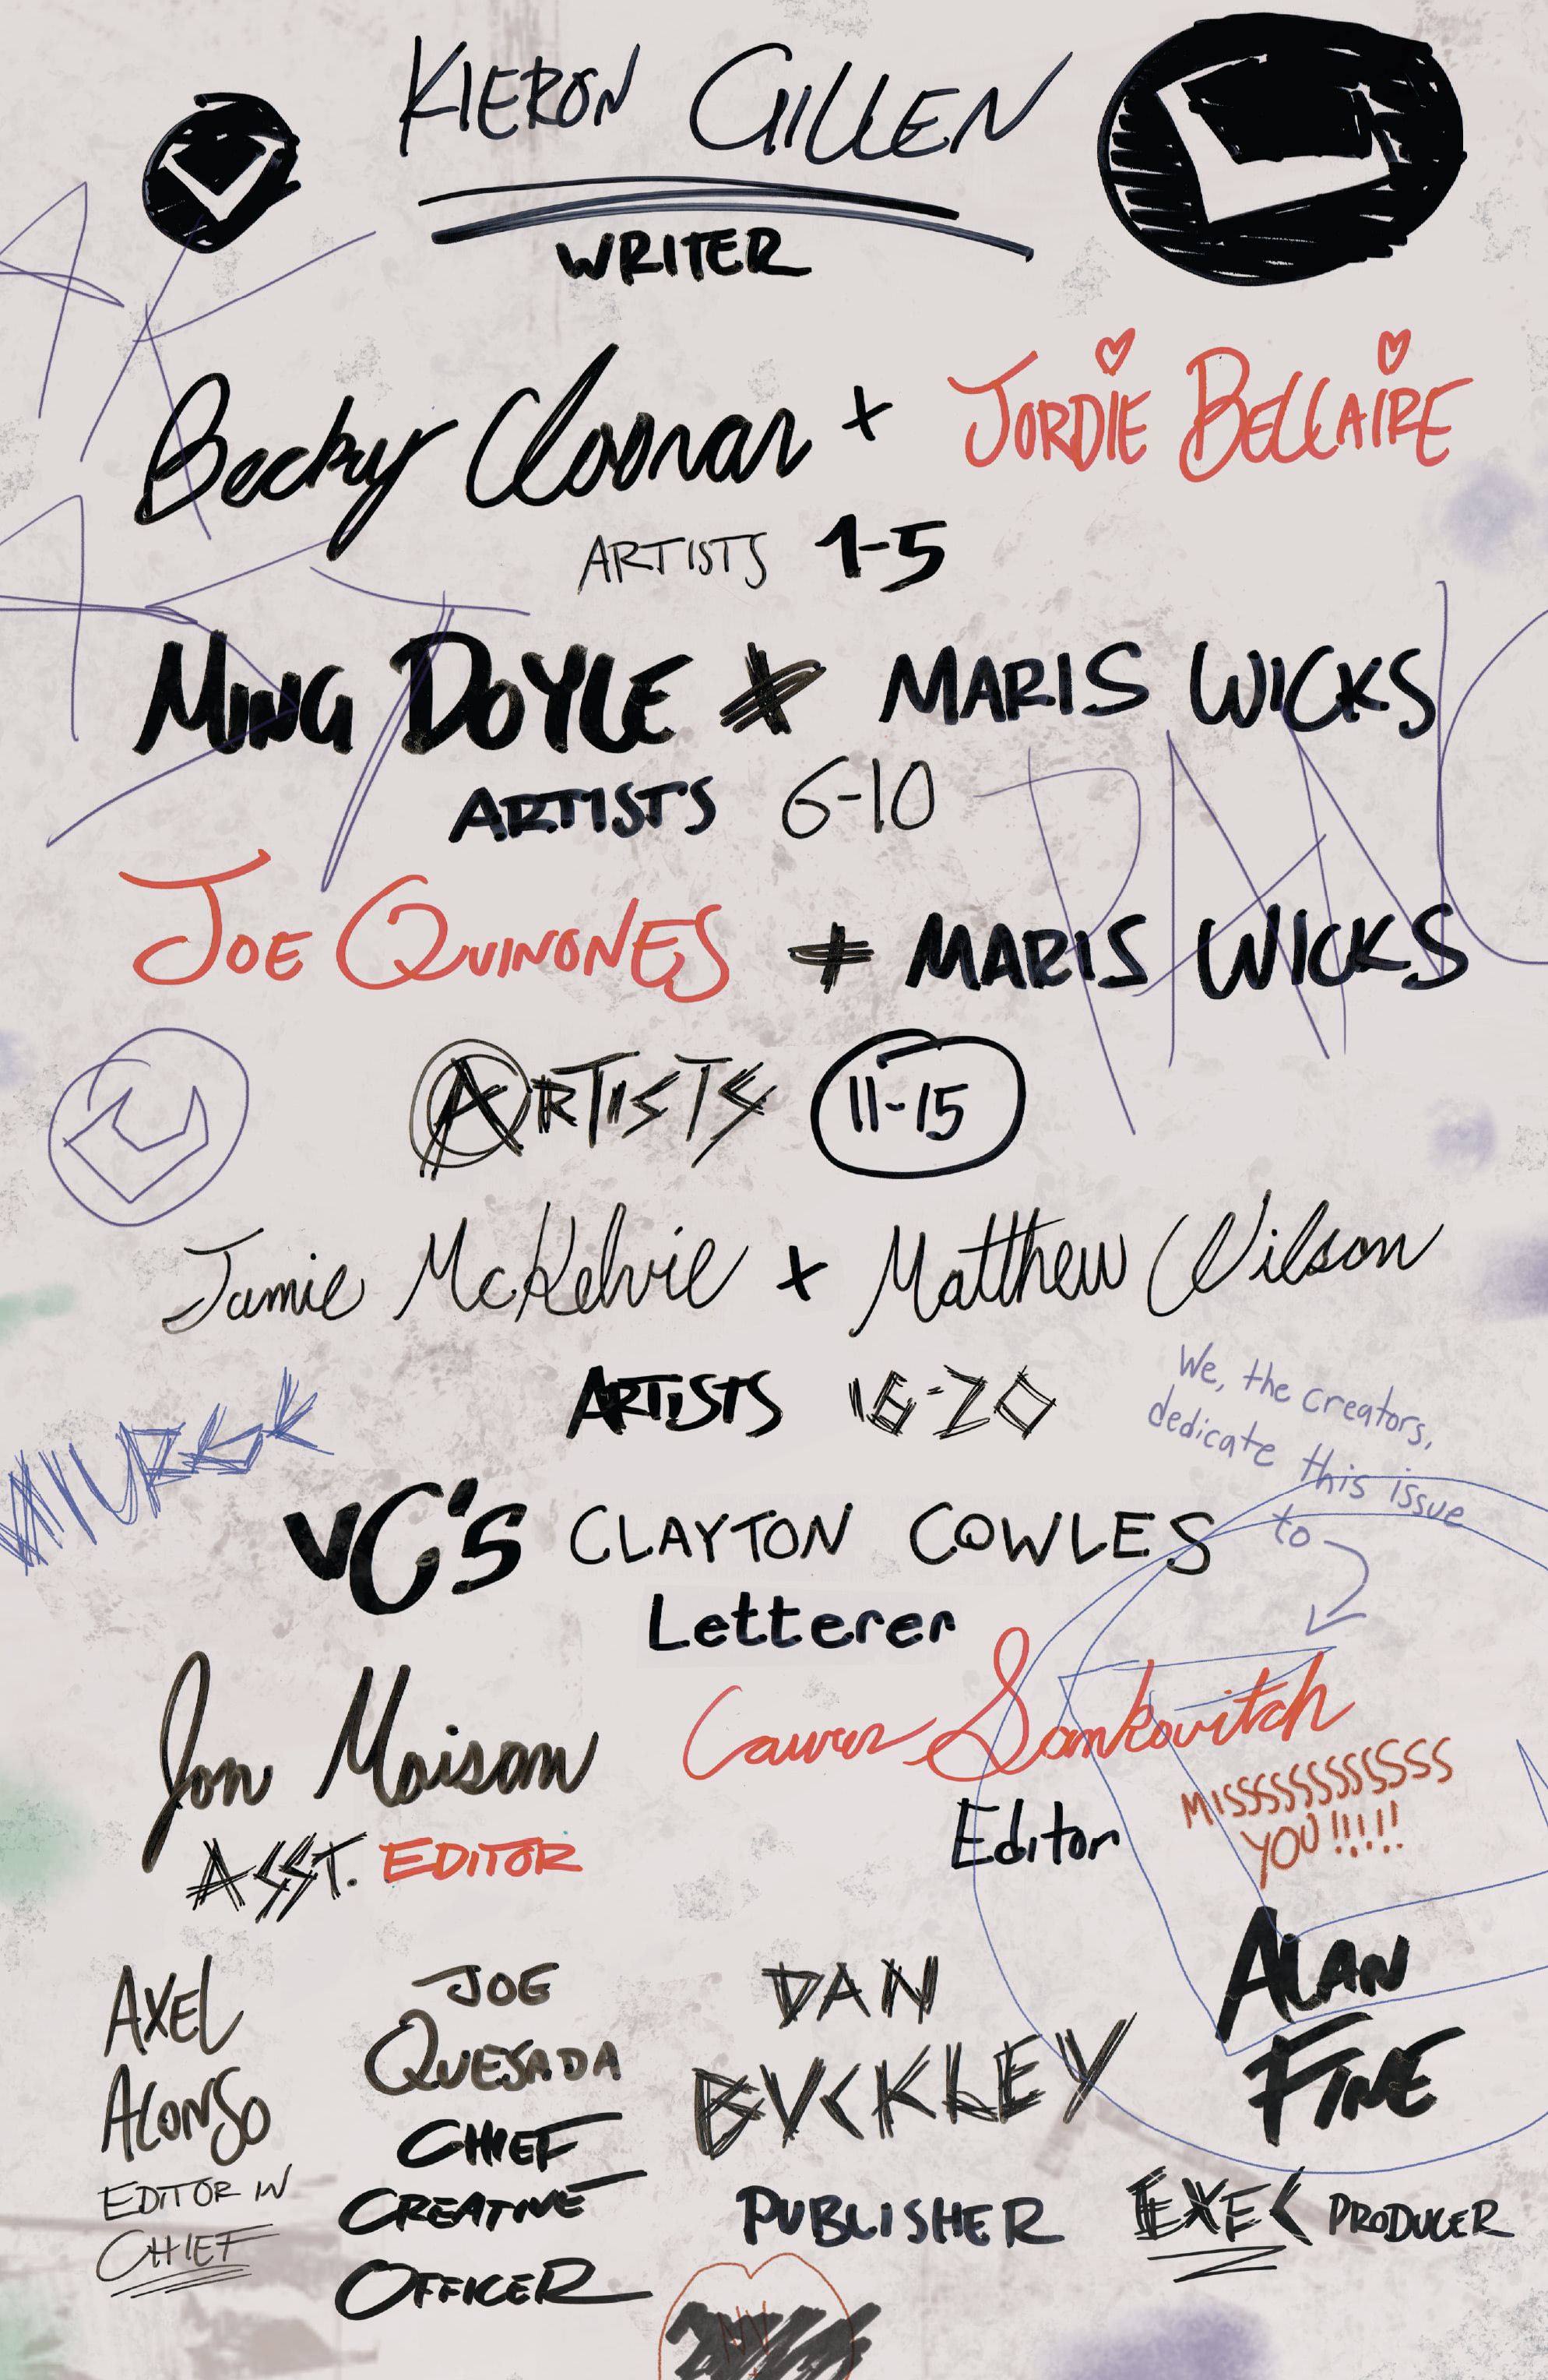 KIERON GILLEN
WRITER
Becky Cloonan + JORDIE BELLAIRE
ARTISTS 1-5
MING DOYLE + MARIS WICKS
ARTISTS 6-10
JOE QUINONES + MARIS WICKS
ARTISTS 11-15
Jamie McKelvie + Matthew Wilson
ARTISTS 16-20
We, the creators,
dedicate this issue
to
VC'S CLAYTON COWLES
Letterer
Jon Moisan
ASST. EDITOR
Lauren Sankovitch
Editor
MISSSSSSSSSSSS
YOU!!!!!
AXEL
ALONSO
EDITOR IN
CHIEF
JOE
QUESADA
CHIEF
CREATIVE
OFFICER
DAN
BUCKLEY
PUBLISHER
ALAN
FINE
EXEC PRODUCER